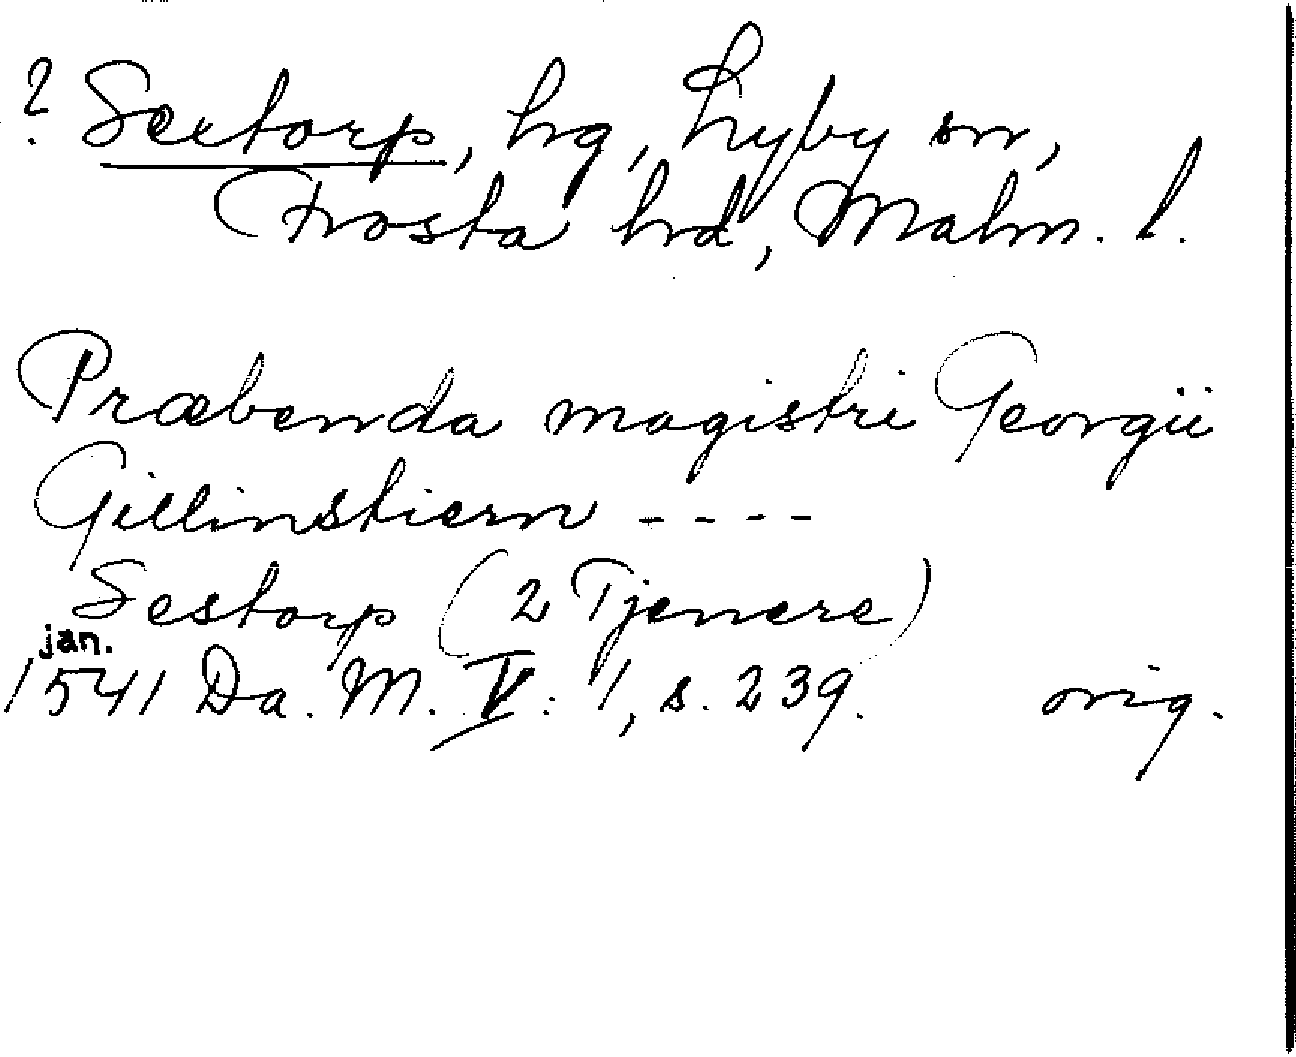 ? Sextorp, hg, Lyby sn,
Frosta hd, Malm. l.
Præbenda magistri Georgii
Gillinstiern ----
Sestorp (2 Tjenere)
jan.
1541 Da. M. V: 1, s. 239. orig.